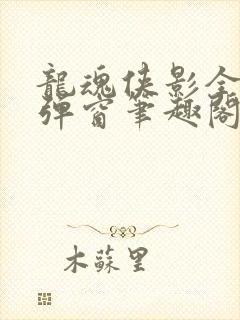 龍魂俠影全
彈窗筆趣閣
木蘇里